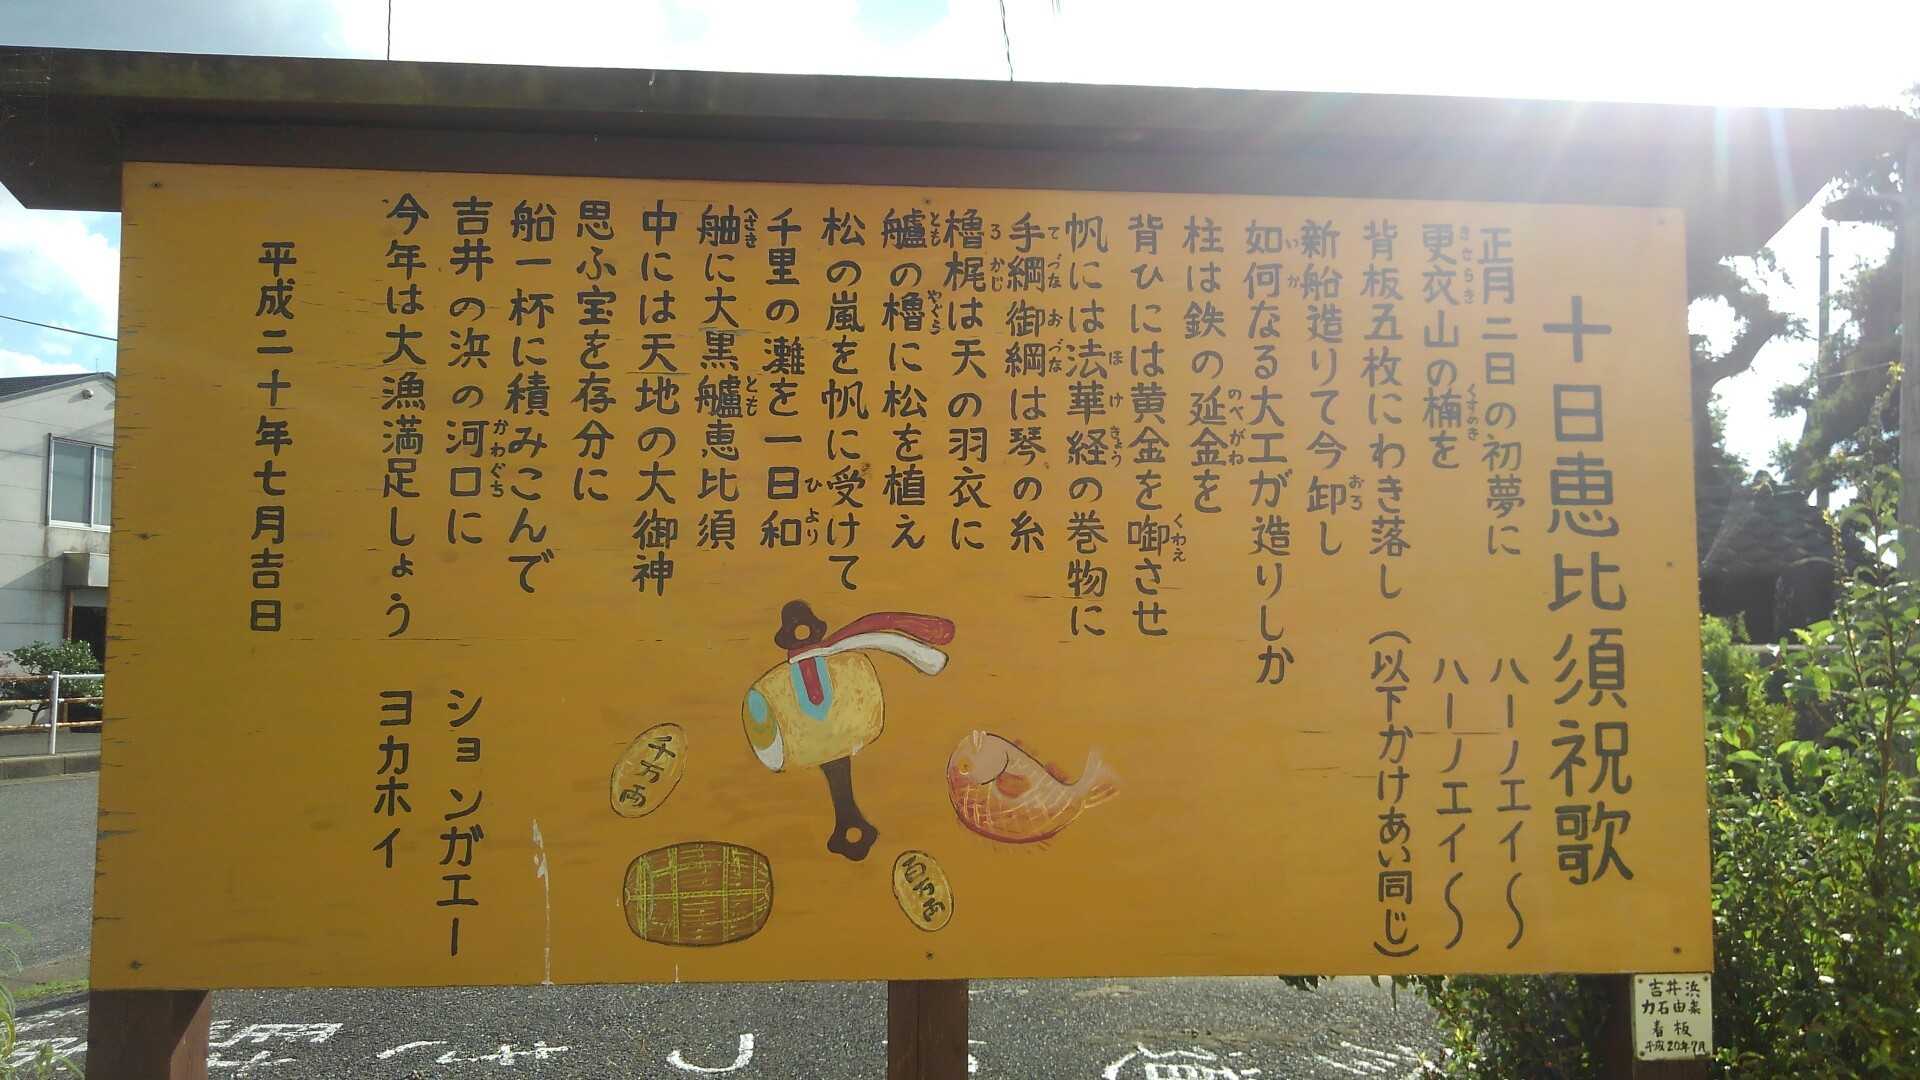 十日恵比須祝歌
正月二日の初夢に ハーノエイ〜
更衣山の楠を ハーノエイ〜
きさらき くすのき
背板五枚にわき落し (以下かけあい同じ)
新船造りて今卸し
おろ
如何なる大工が造りしか
いか
柱は鉄の延金を
のべがね
背ひには黄金を啣させ
くわえ
帆には法華経の巻物に
ほけきょう
手綱御綱は琴の糸
てづなおづな
櫓梶は天の羽衣に
ろかじ
艫の櫓に松を植え
とも やぐら
松の嵐を帆に受けて
千里の灘を一日和
ひより
舳に大黒艫恵比須
へさき とも
中には天地の大御神
思ふ宝を存分に
船一杯に積みこんで
吉井の浜の河口に ションガエー
かわぐち
今年は大漁満足しょう ヨカホイ
平成二十年七月吉日
千万両
百万両
吉井浜
力石由来
看板
平成20年7月